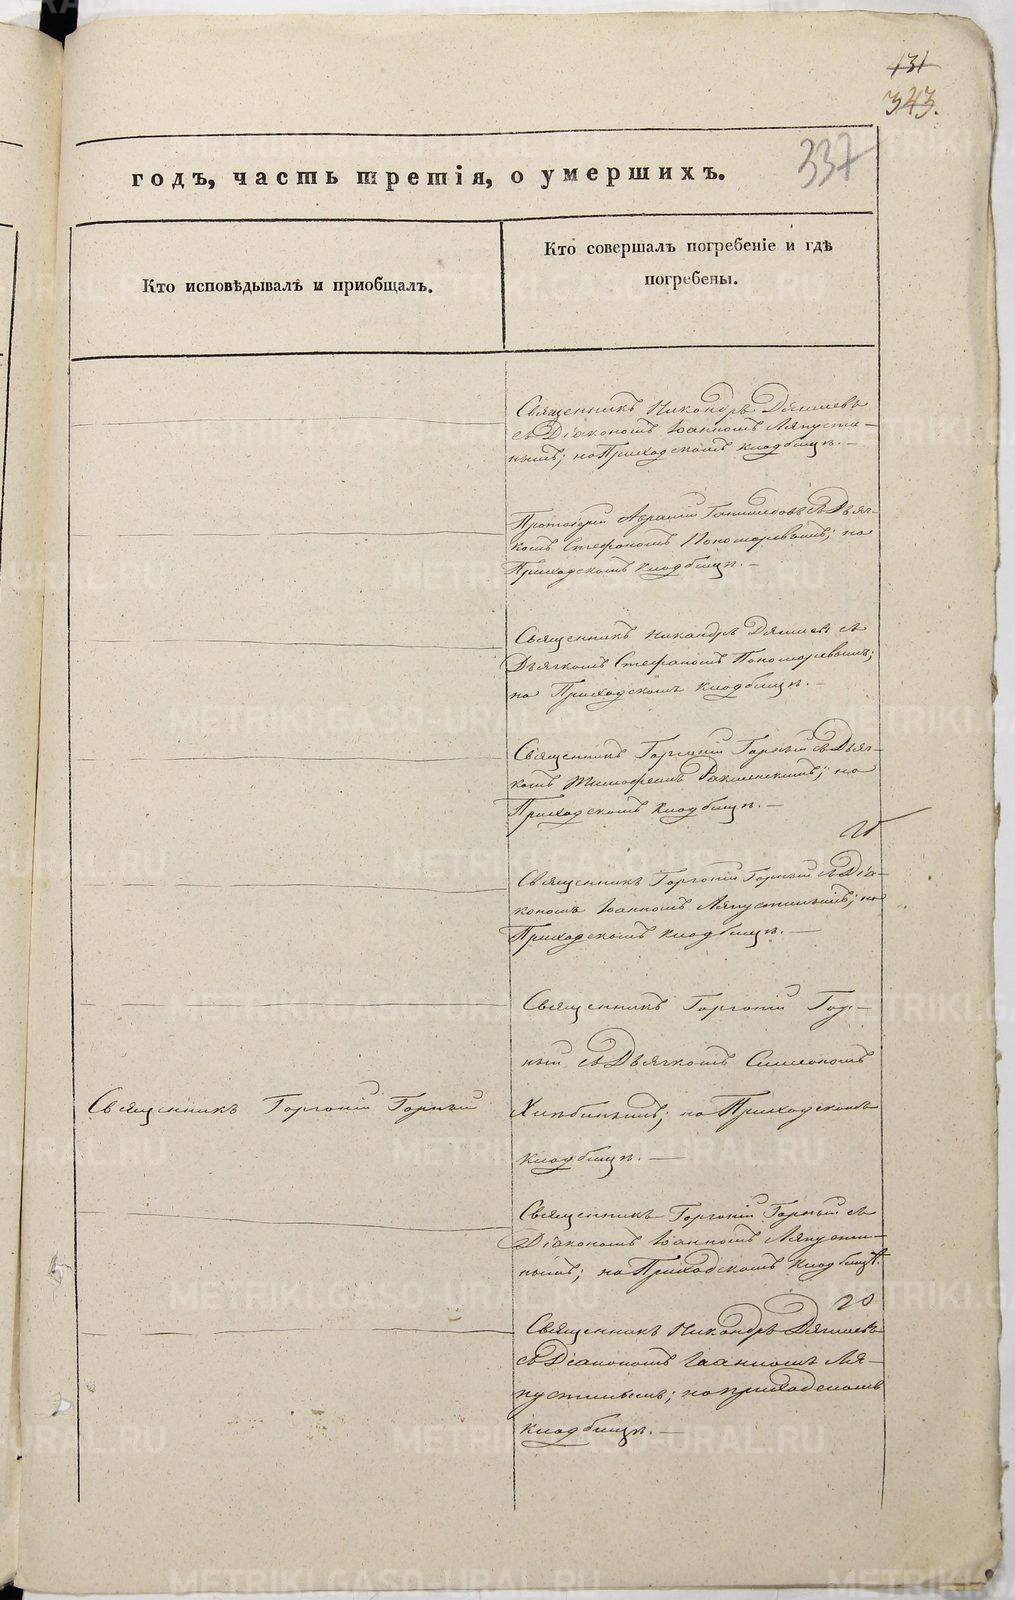 131
343.
337
годъ, часть третія, о умершихъ.
Кто исповѣдывалъ и приобщалъ.
Кто совершалъ погребеніе и гдѣ
погребены.
Священникъ Никандръ Дягилевъ
съ Діакономъ Іоанномъ Ляпусти-
нымъ; на Приходскомъ кладбищѣ. —
Протоіерей Аврамій съ Дьяч-
комъ Стефаномъ Пономаревымъ; на
Приходскомъ кладбищѣ. —
Священникъ Никандръ Дягилевъ съ
Дьячкомъ Стефаномъ Пономаревымъ;
на Приходскомъ кладбищѣ. —
Священникъ Горгоній Горный съ Дьяч-
комъ Тимофеемъ на
Приходскомъ кладбищѣ. —
Священникъ Горгоній Горный съ Діа-
кономъ Іоанномъ Ляпустинымъ; на
Приходскомъ кладбищѣ. —
Священникъ Горгоній Гор-
ный съ Дьячкомъ Симеономъ
Священникъ Горгоній Горный
Хлѣбинымъ; на Приходскомъ
кладбищѣ. —
Священникъ Горгоній Горный съ
Діакономъ Іоанномъ Ляпусти-
нымъ; на Приходскомъ кладбищѣ.
Священникъ Никандръ Дягилевъ
съ Діакономъ Іоанномъ Ля-
пустинымъ; на приходскомъ
кладбищѣ. —
METRIKI.GASO-URAL.RU